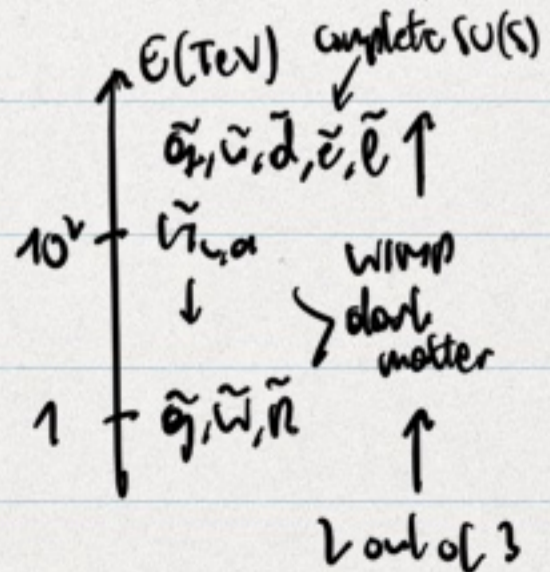 E(TeV)
complete SU(5)
q̃, ũ, d̃, ẽ, l̃
10²
h̃u,d
WIMP
dark
matter
1
g̃, w̃, B̃
2 out of 3